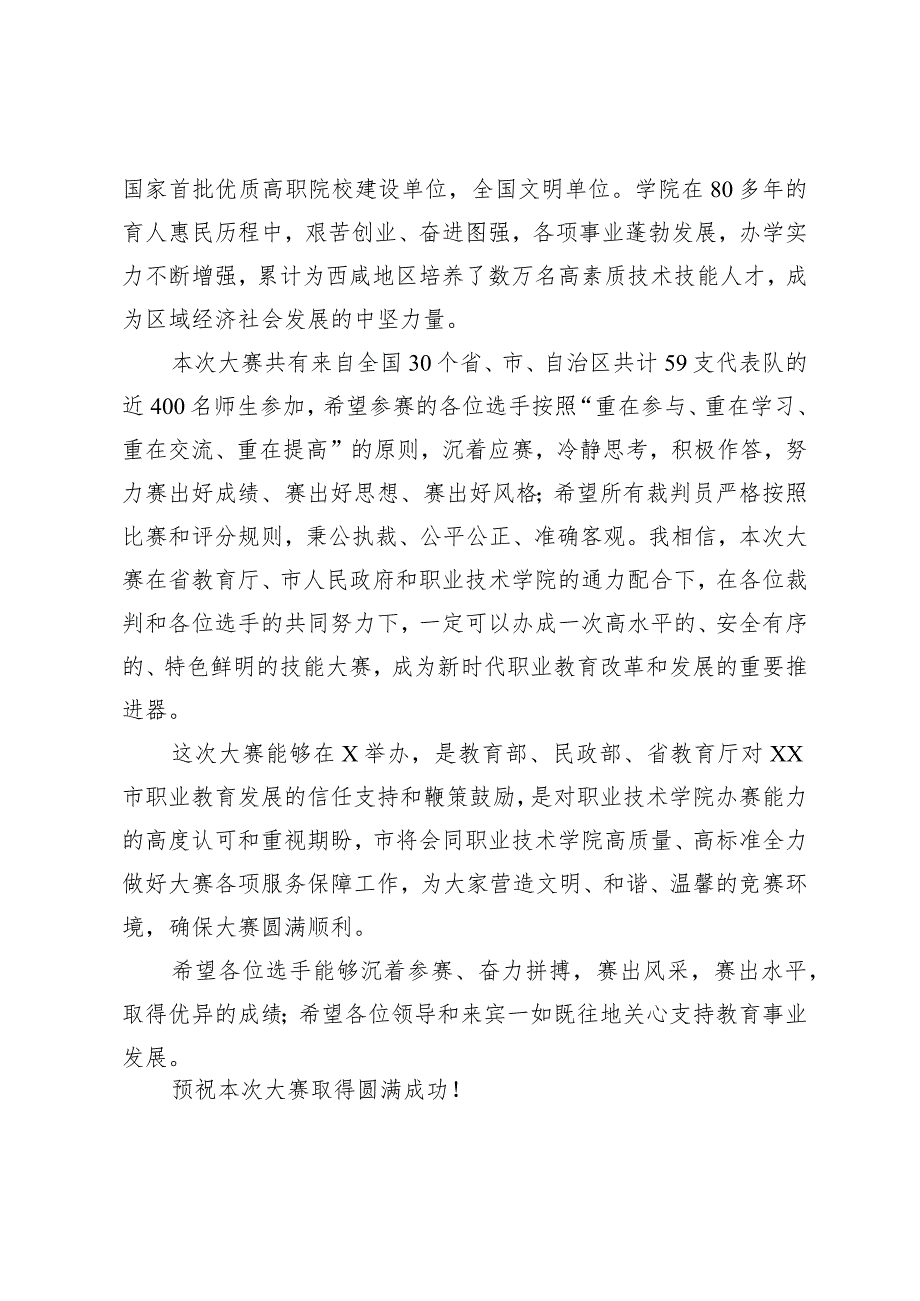 国家首批优质高职院校建设单位，全国文明单位。学院在 80 多年的
育人惠民历程中，艰苦创业、奋进图强，各项事业蓬勃发展，办学实
力不断增强，累计为西咸地区培养了数万名高素质技术技能人才，成
为区域经济社会发展的中坚力量。
本次大赛共有来自全国 30 个省、市、自治区共计 59 支代表队的
近 400 名师生参加，希望参赛的各位选手按照“重在参与、重在学习、
重在交流、重在提高”的原则，沉着应赛，冷静思考，积极作答，努
力赛出好成绩、赛出好思想、赛出好风格；希望所有裁判员严格按照
比赛和评分规则，秉公执裁、公平公正、准确客观。我相信，本次大
赛在省教育厅、市人民政府和职业技术学院的通力配合下，在各位裁
判和各位选手的共同努力下，一定可以办成一次高水平的、安全有序
的、特色鲜明的技能大赛，成为新时代职业教育改革和发展的重要推
进器。
这次大赛能够在 X 举办，是教育部、民政部、省教育厅对 XX
市职业教育发展的信任支持和鞭策鼓励，是对职业技术学院办赛能力
的高度认可和重视期盼，市将会同职业技术学院高质量、高标准全力
做好大赛各项服务保障工作，为大家营造文明、和谐、温馨的竞赛环
境，确保大赛圆满顺利。
希望各位选手能够沉着参赛、奋力拼搏，赛出风采，赛出水平，
取得优异的成绩；希望各位领导和来宾一如既往地关心支持教育事业
发展。
预祝本次大赛取得圆满成功！